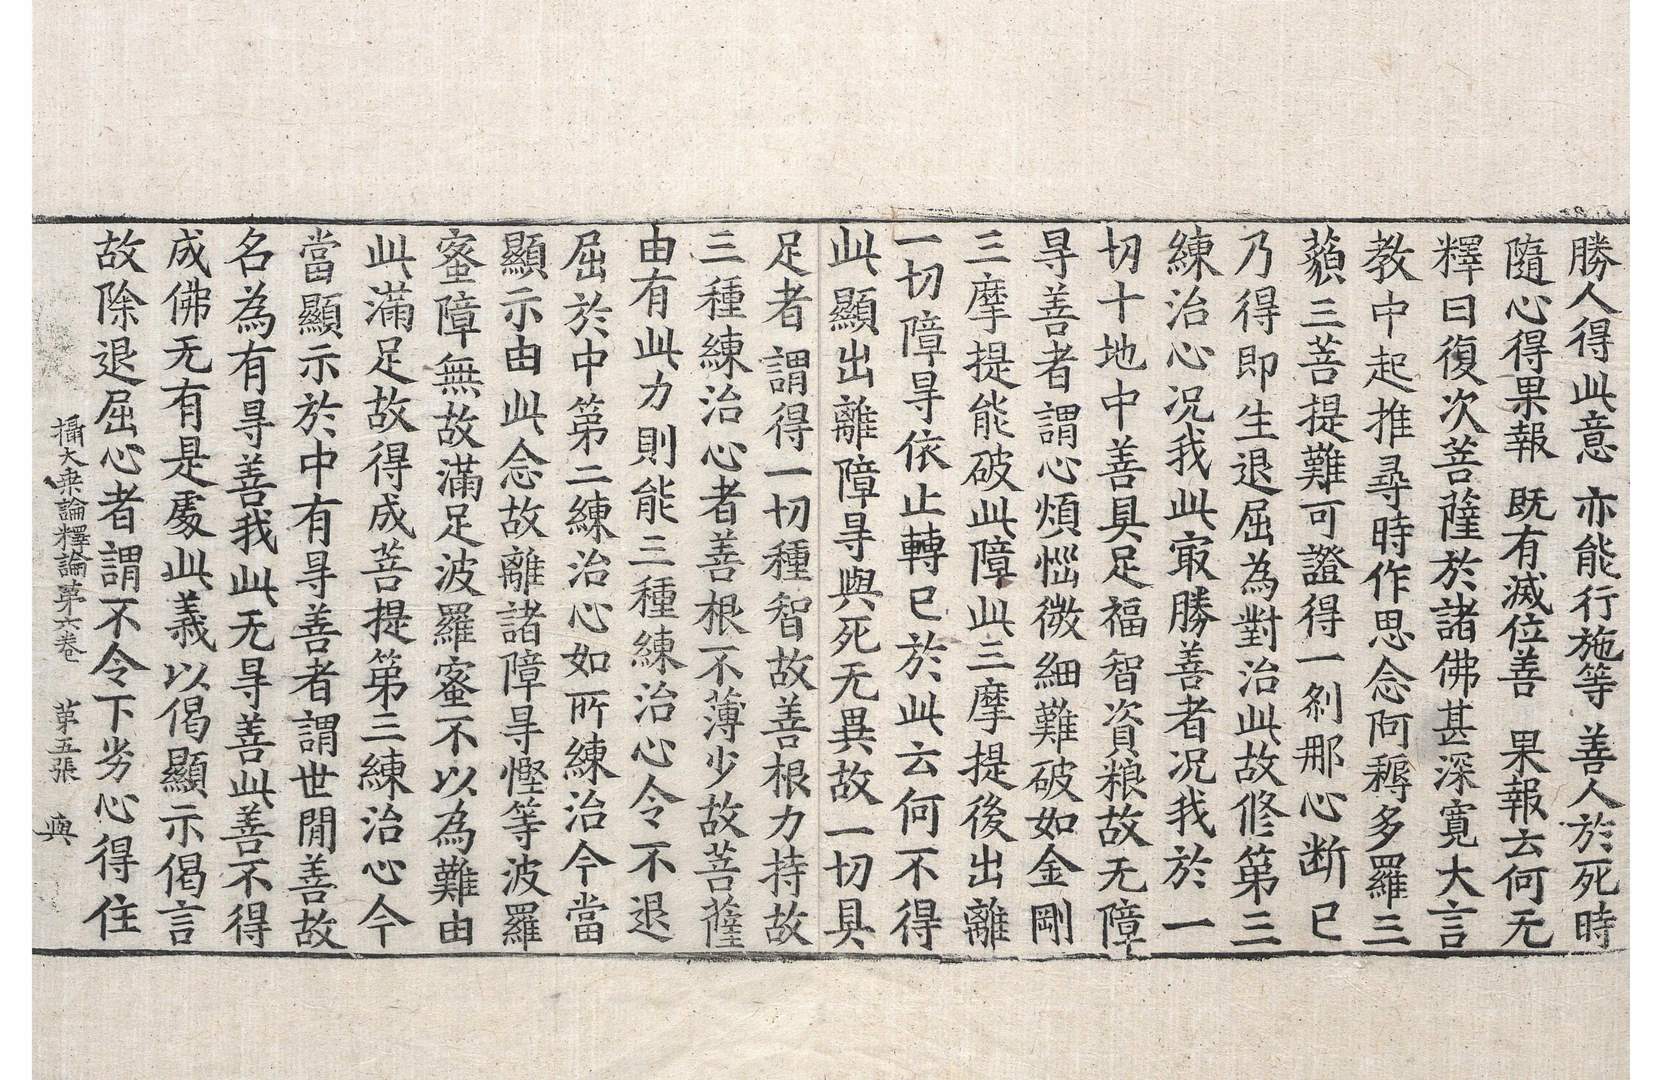 勝人得此意　亦能行施等　善人於死時
隨心得果報　既有滅位善　果報云何无
釋曰復次菩薩於諸佛甚深寬大言
教中起推尋時作思念阿耨多羅三
藐三菩提難可證得一剎那心断已
乃得即生退屈為對治此故修第三
練治心況我此㝡勝善者況我於一
切十地中善具足福智資粮故无障
㝵善者謂心煩惱微細難破如金剛
三摩提能破此障此三摩提後出離
一切障㝵依止轉已於此云何不得
此顯出離障㝵與死无異故一切具
足者謂得一切種智故善根力持故
三種練治心者善根不薄少故菩薩
由有此力則能三種練治心令不退
屈於中第二練治心如所練治今當
顯示由此念故離諸障㝵慳等波羅
蜜障無故滿足波羅蜜不以為難由
此滿足故得成菩提第三練治心今
當顯示於中有㝵善者謂世間善故
名為有㝵善我此无㝵善此善不得
成佛无有是處此義以偈顯示偈言
故除退屈心者謂不令下劣心得住
攝大乗論釋論第六卷　苐五張　與